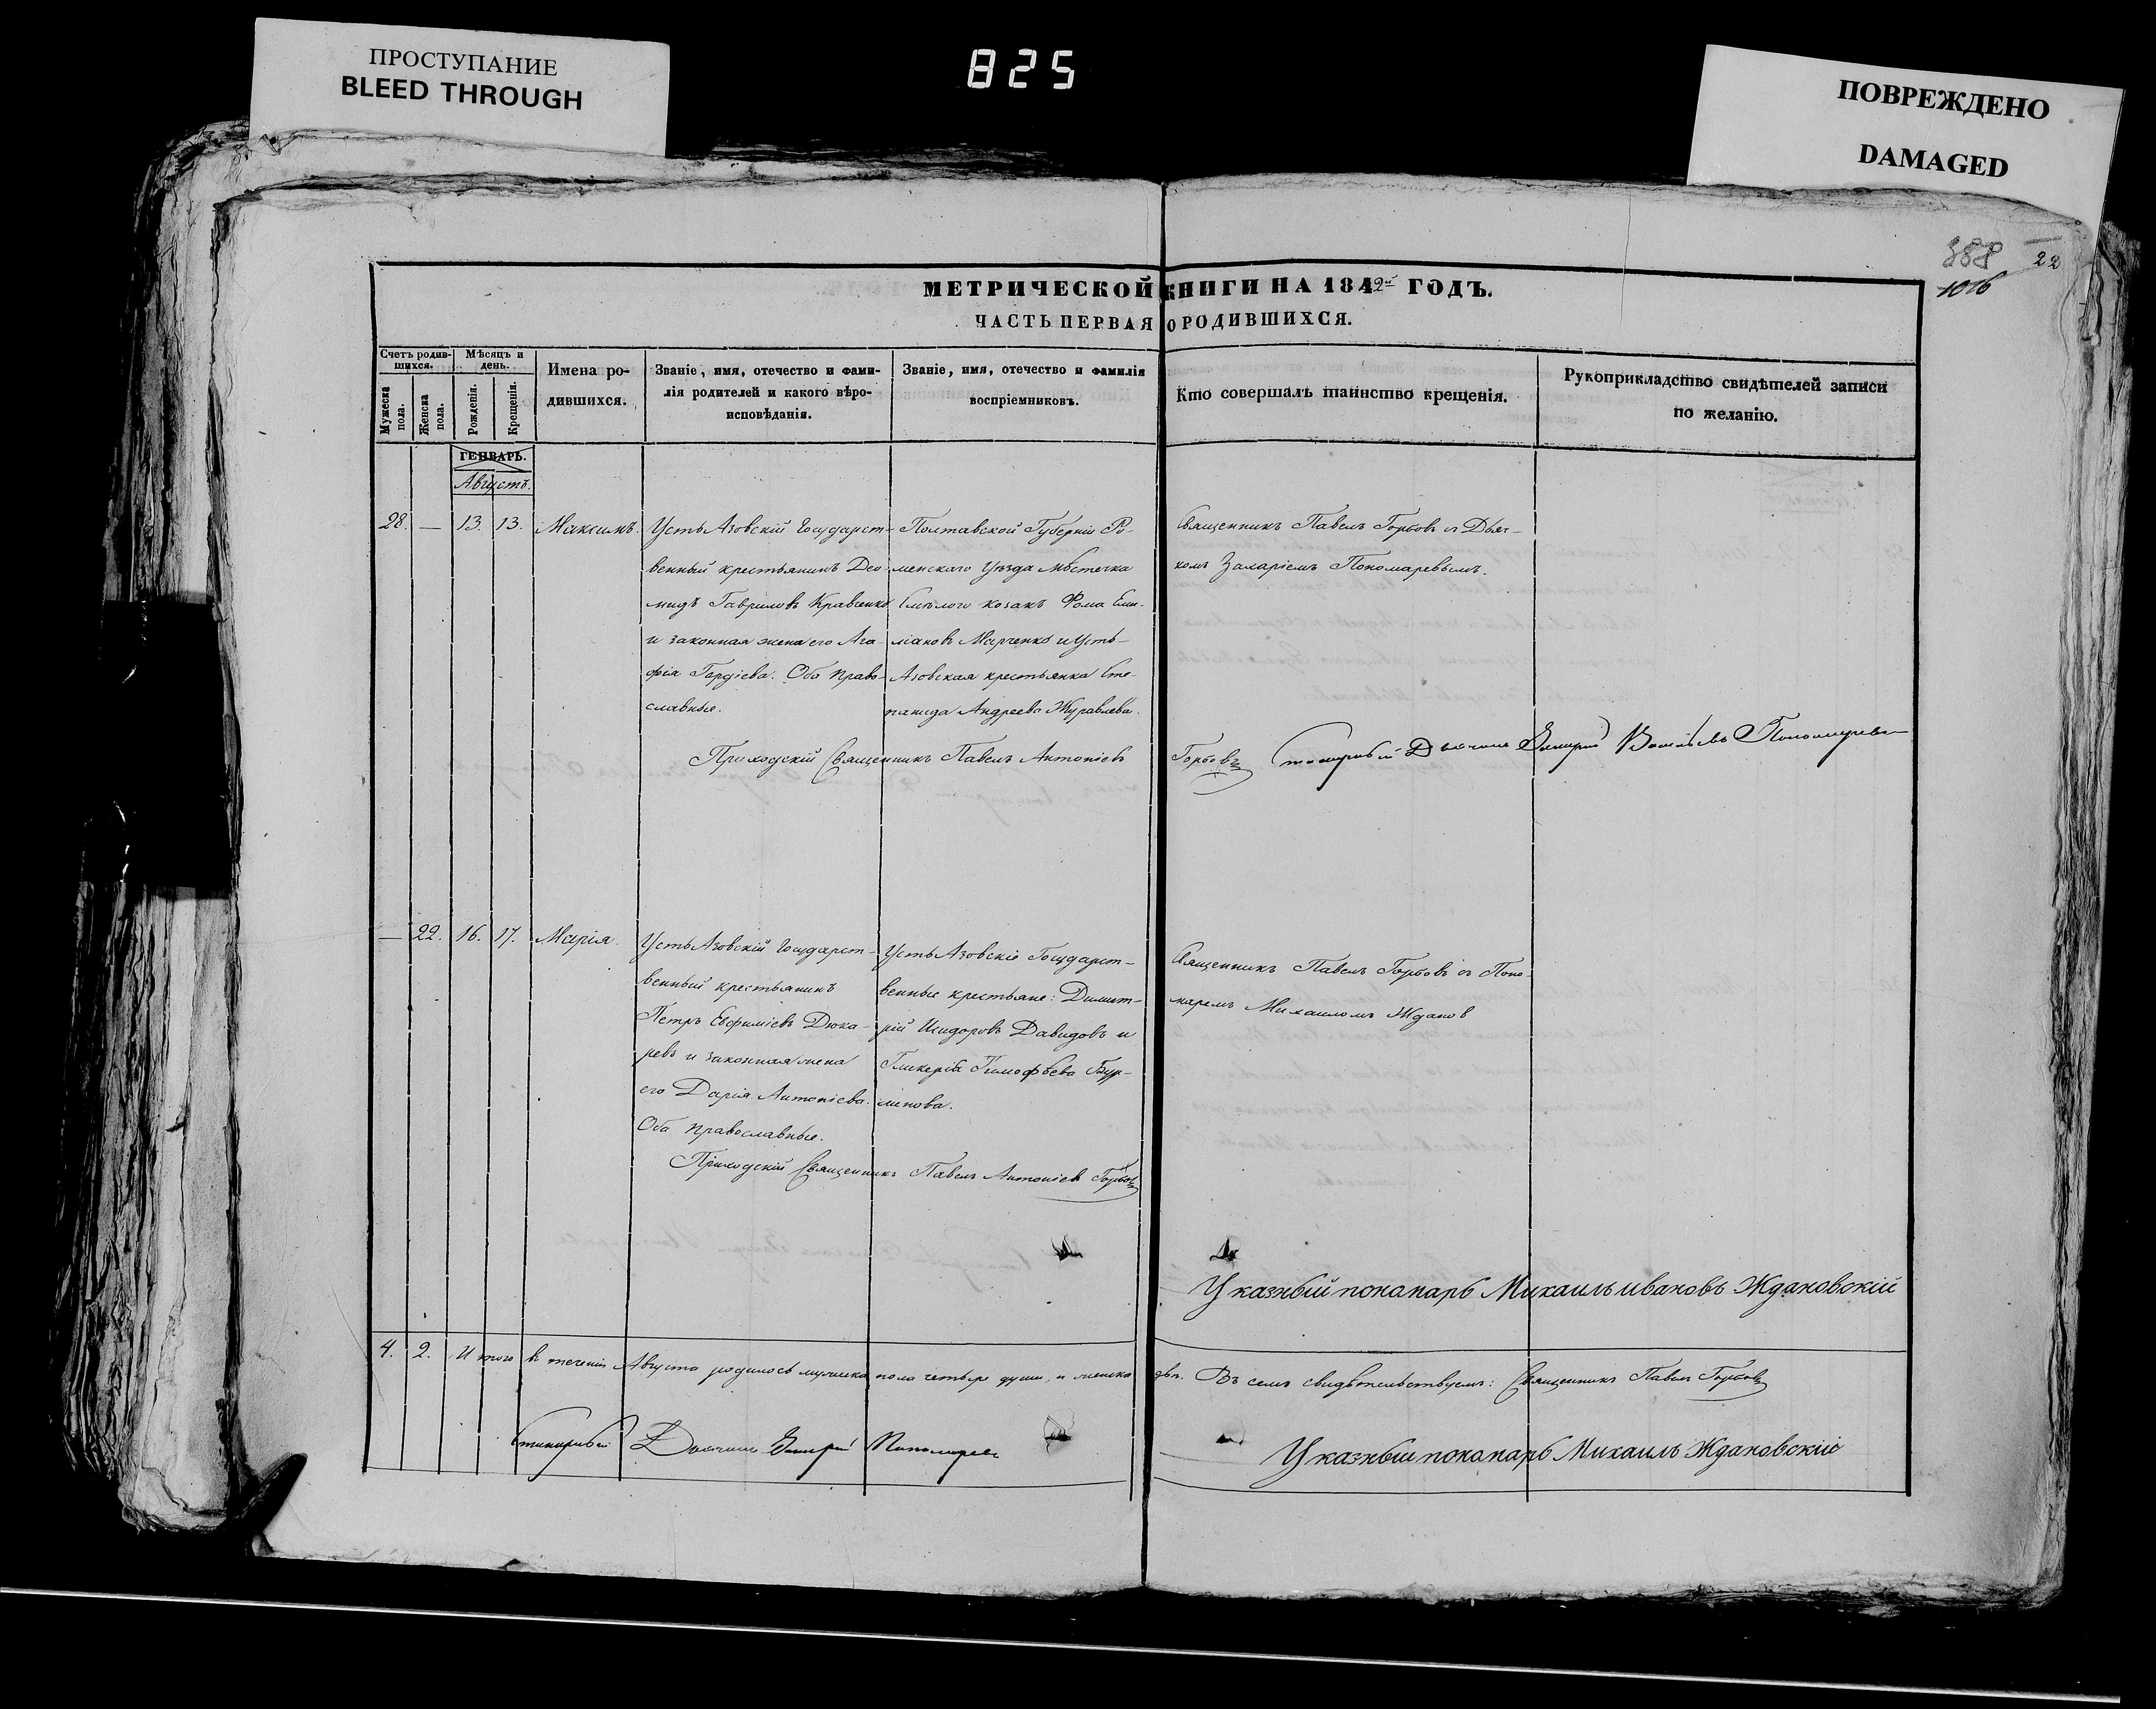 ПРОСТУПАНИЕ
BLEED THROUGH
825
ПОВРЕЖДЕНО
DAMAGED
388
22
1016
МЕТРИЧЕСКОЙ КНИГИ НА 1842й ГОДЪ.
ЧАСТЬ ПЕРВАЯ О РОДИВШИХСЯ.
Счетъ родив-
шихся.
Мужеска пола.
Женска пола.
Мѣсяцъ и
день.
Рожденія.
Крещенія.
Имена ро-
дившихся.
Званіе, имя, отечество и фами-
лія родителей и какого вѣро-
исповѣданія.
Званіе, имя, отечество и фамилія
воспріемниковъ.
Кто совершалъ таинство крещенія.
Рукоприкладство свидѣтелей записи
по желанію.
ГЕНВАРЬ.
Августъ.
28. — 13. 13. Максимъ.
Усть Азовскій Государст-
венный крестьянинъ Део-
мидъ Гавриловъ Кравченко
и законная жена его Ага-
фія Гордіева. Оба право-
славные.
Полтавской Губерніи Ро-
менскаго Уѣзда Мѣстечка
Смѣлого козакъ Фома Еми-
ліановъ Марченко и Усть-
Азовская крестьянка Сте-
панида Андреева Журавлева.
Священникъ Павелъ Горбовъ съ Дьяч-
комъ Захаріемъ Пономаревымъ.
Приходскій Священникъ Павелъ Антоніевъ Горбовъ
Дьячекъ Захарій Васильевъ Пономаревъ
— 22. 16. 17. Марія.
Усть Азовскій Государст-
венный крестьянинъ
Петръ Евфиміевъ Дюка-
ревъ и законная жена
его Дарія Антоніева.
Оба православные.
Усть Азовскіе Государст-
венные крестьяне: Димит-
рій Исидоровъ Давидовъ и
Гликерія Тимофѣева Бур-
лакова.
Священникъ Павелъ Горбовъ съ Поно-
маремъ Михаиломъ Жданов
Приходскій Священникъ Павелъ Антоніевъ Горбовъ
Указный понамарь Михаилъ ивановъ Ждановскій
4. 2. Итого въ теченіи Августа родилось мужеска пола четыре души, и женска двѣ. Въ семъ свидѣтельствуемъ: Священникъ Павелъ Горбовъ
Дьячекъ Захарій Пономаревъ
Указный понамарь Михаилъ Ждановскій